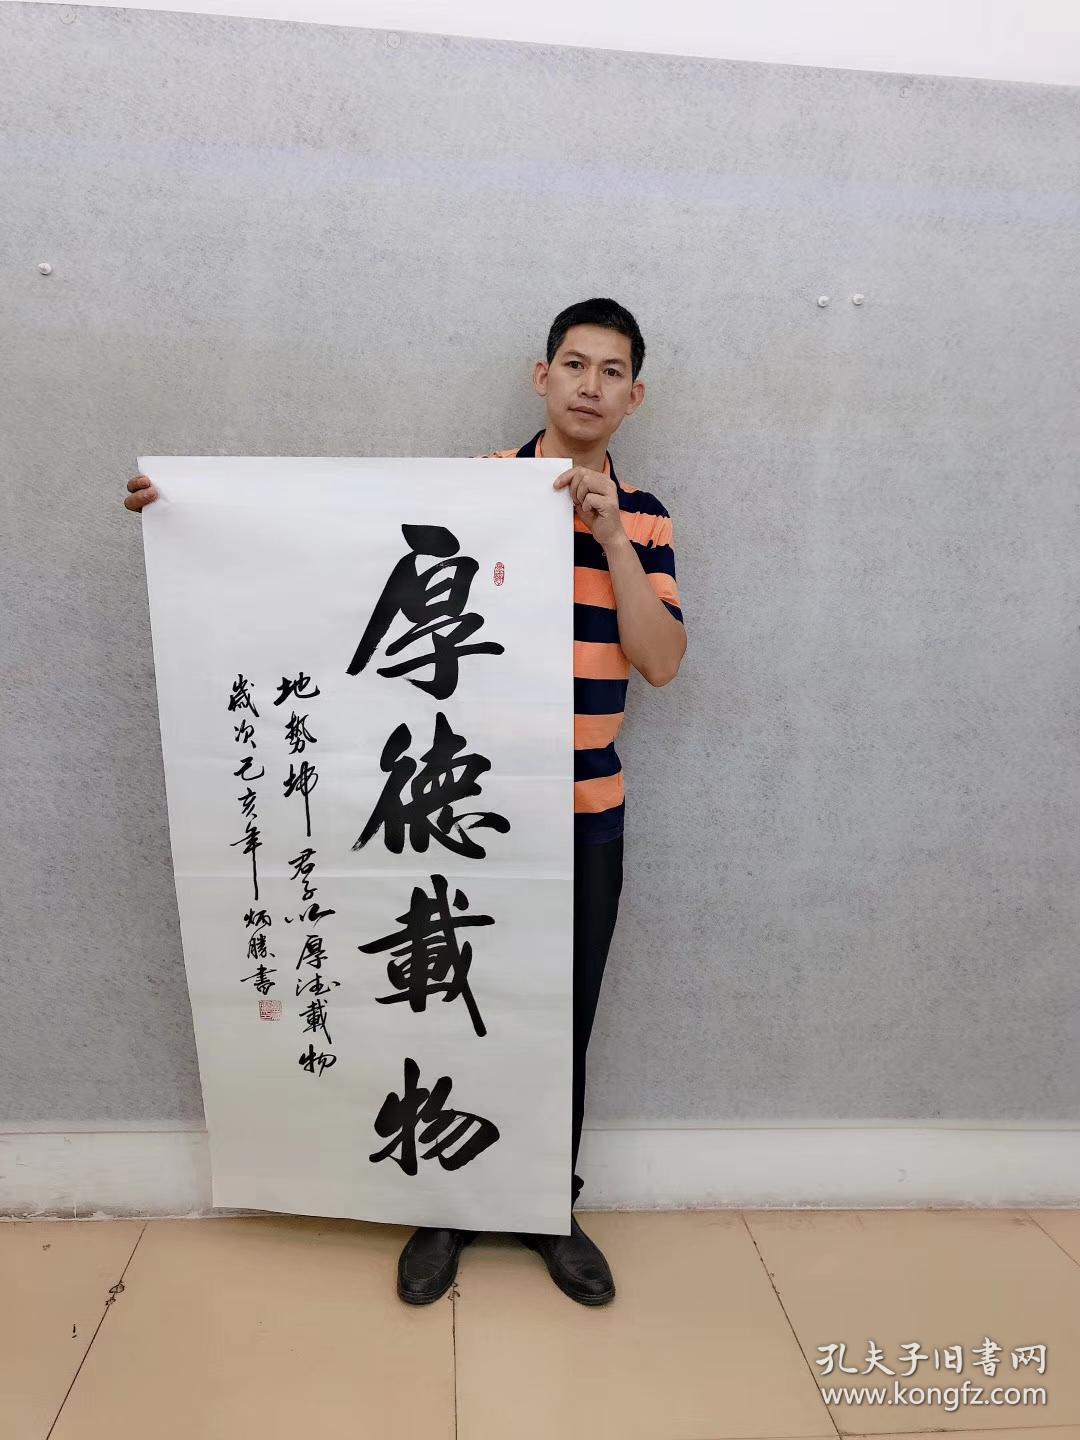 厚德載物
地勢坤 君子以厚德載物
歲次己亥年 炳勝書
孔夫子旧書网
www.kongfz.com